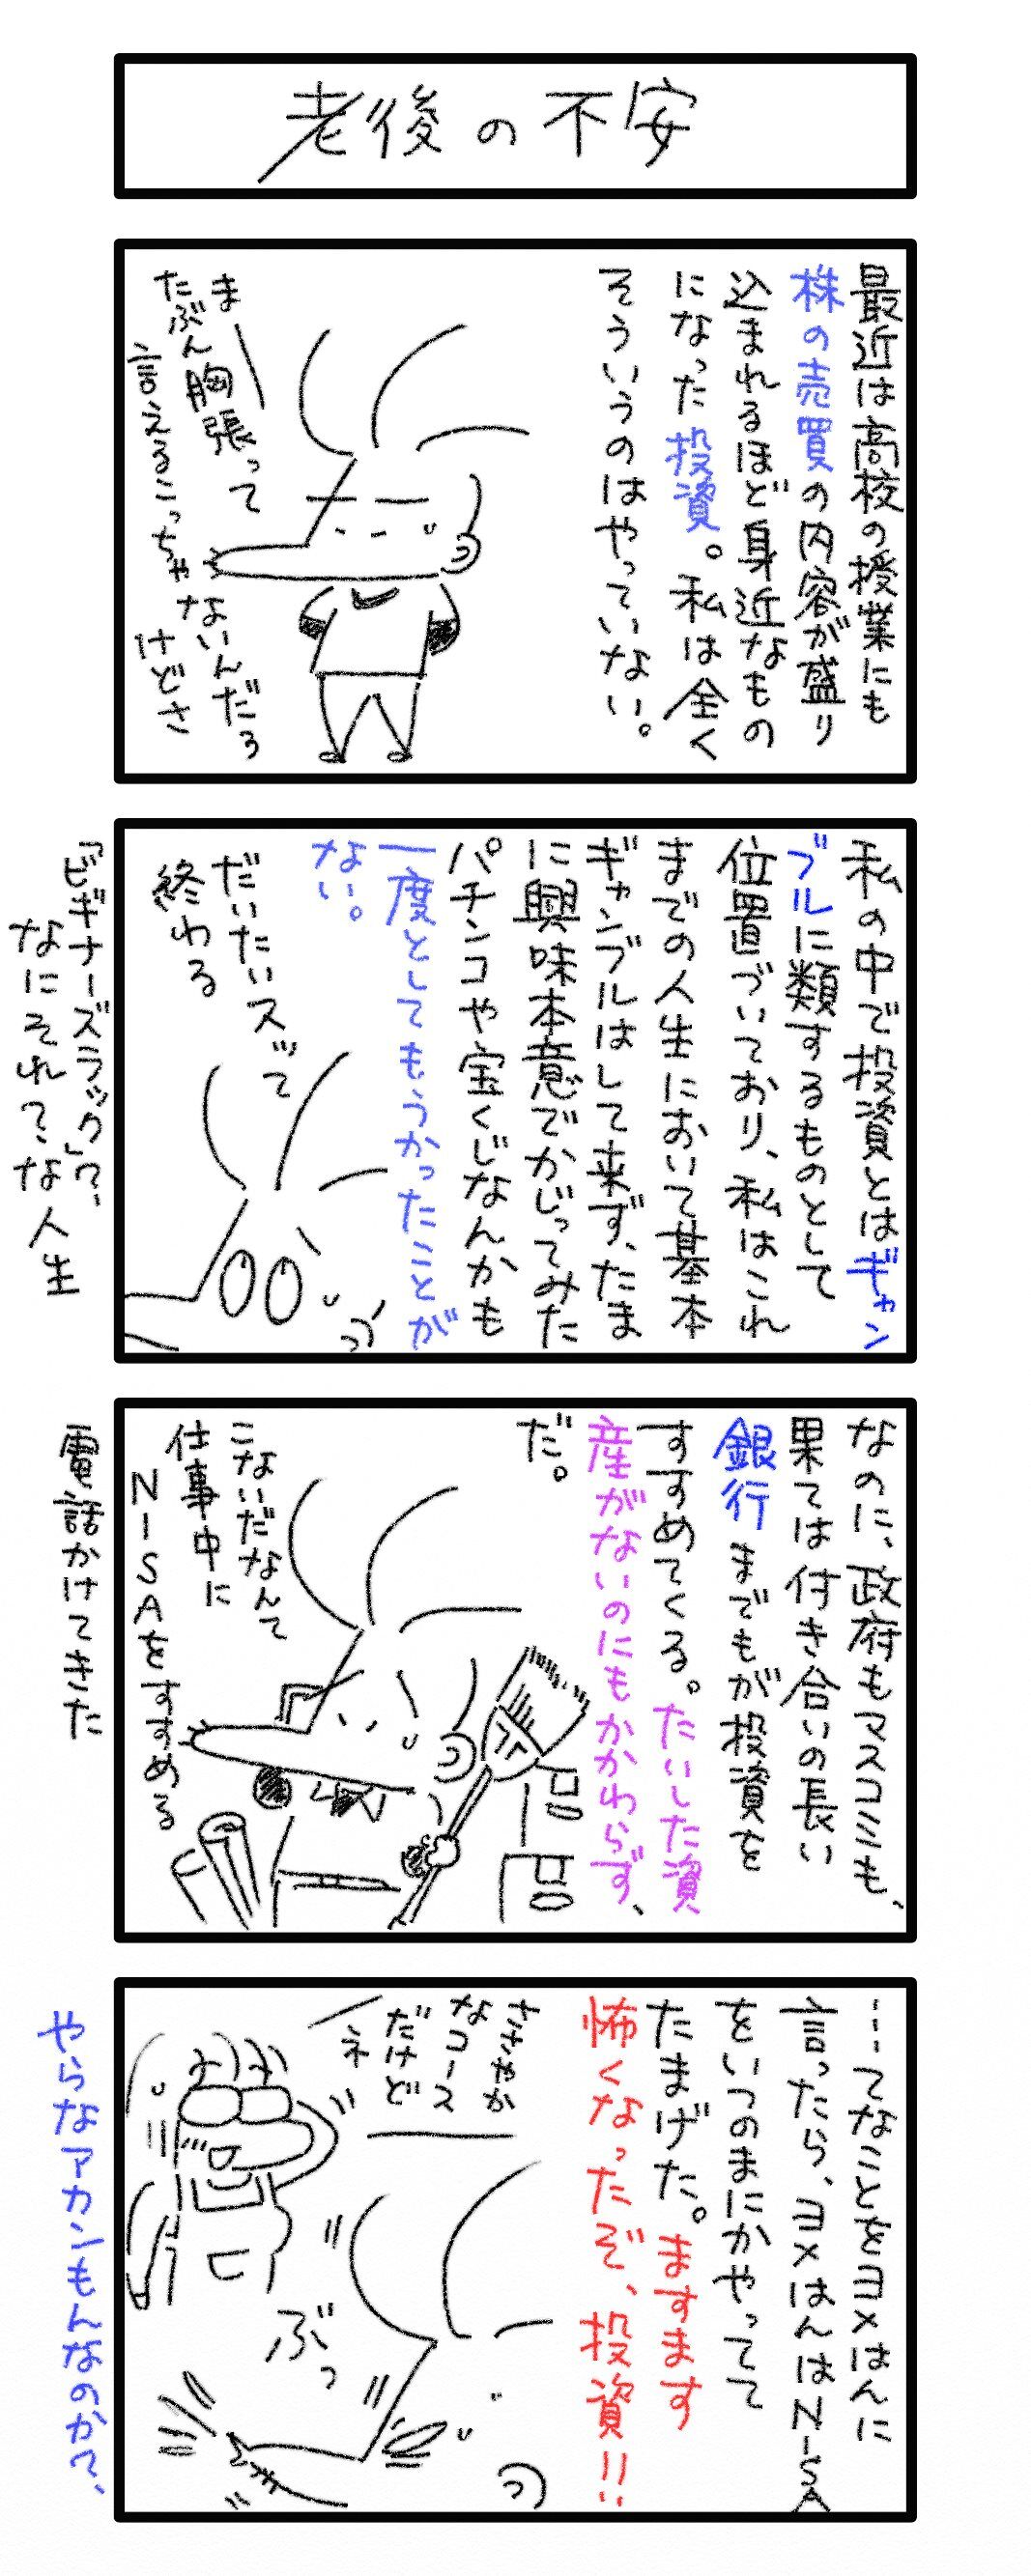 老後の不安
最近は高校の授業にも
株の売買の内容が盛り
込まれるほど身近なもの
になった投資。私は全く
そういうのはやっていない。
ま
たぶん胸張って
言えるこっちゃないんだろ
けどさ
私の中で投資とはギャン
ブルに類するものとして
位置づいており、私はこれ
までの人生において基本
ギャンブルはして来ず、たま
に興味本意でかじってみた
パチンコや宝くじなんかも
一度としてもうかったことが
ない。
だいたいスッて
終わる
「ビギナーズラック」?、
なにそれ?な人生
なのに、政府もマスコミも、
果ては付き合いの長い
銀行までもが投資を
すすめてくる。たいした資
産がないのにもかかわらず、
だ。
こないだなんて
仕事中に
NISAをすすめる
電話かけてきた
…てなことをヨメはんに
言ったら、ヨメはんはNISA
をいつのまにかやってて
たまげた。ますます
怖くなったぞ、投資!!
ささやか
なコース
だけど
ネ
ぶっ
やらなアカンもんなのか?、